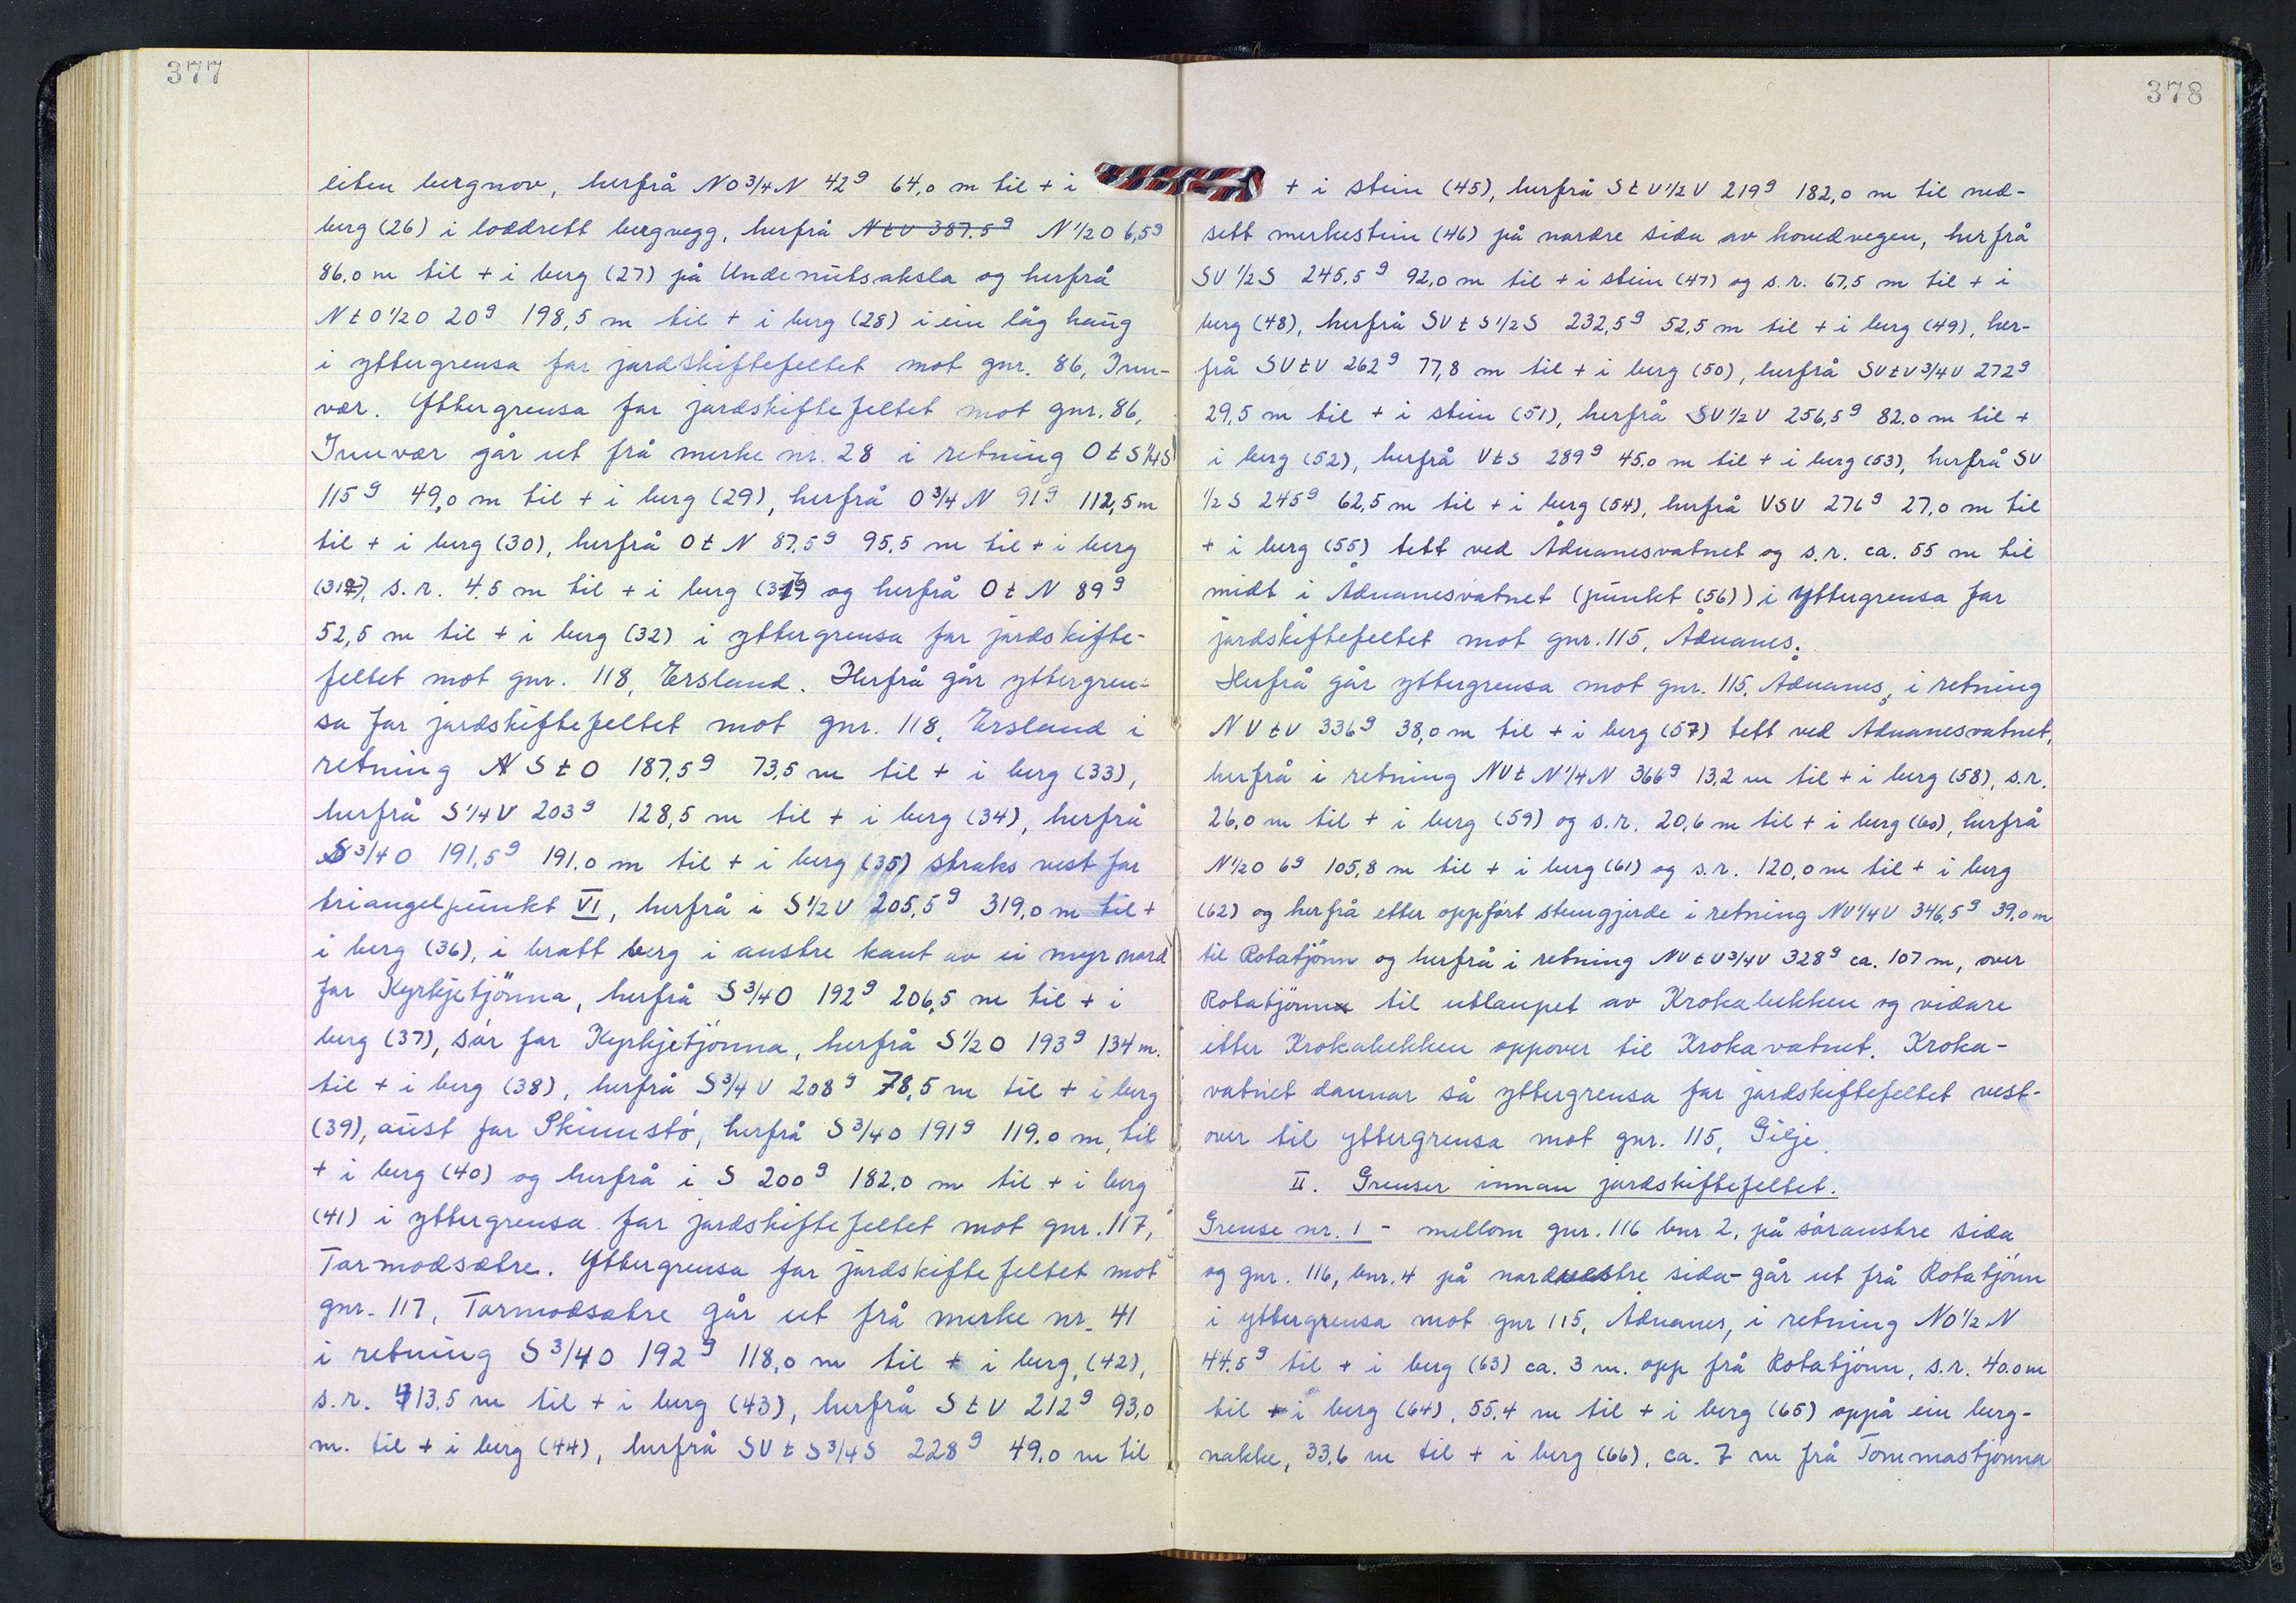 377
liten bergnov, herfrå NO 3/4 N 42g 64,0 m til + i
berg (26) i loddrett bergvegg, herfrå NtV 387,5g N 1/2 O 6,5g
86,0 m til + i berg (27) på Undenutsaksla og herfrå
NtO 1/2 O 20g 198,5 m til + i berg (28) i ein låg haug
i yttergrensa for jordskiftefeltet mot gnr. 86, Inn-
vær. Yttergrensa for jordskiftefeltet mot gnr. 86,
Innvær går ut frå merke nr. 28 i retning OtS 1/4 S
115g 49,0 m til + i berg (29), herfrå O 3/4 N 91g 112,5 m
til + i berg (30), herfrå OtN 87,5g 95,5 m til + i berg
s.r. 4,5 m til + i berg og herfrå OtN 89g
52,5 m til + i berg (32) i yttergrensa for jordskifte-
feltet mot gnr. 118, Ersland. Herfrå går yttergren-
sa for jordskiftefeltet mot gnr. 118, Ersland i
retning N StO 187,5g 73,5 m til + i berg (33),
herfrå S 1/4 V 203g 128,5 m til + i berg (34), herfrå
S 3/4 O 191,5g 191,0 m til + i berg (35) straks vest for
triangelpunkt VI, herfrå i S 1/2 V 205,5g 319,0 m til +
i berg (36), i bratt berg i austre kant av ei myr nord
for Kyrkjetjönna, herfrå S 3/4 O 192g 206,5 m til + i
berg (37), sör for Kyrkjetjönna, herfrå S 1/2 O 193g 134 m.
til + i berg (38), herfrå S 3/4 V 208g 78,5 m til + i berg
(39), aust for Skinnstö, herfrå S 3/4 O 191g 119,0 m til
+ i berg (40) og herfrå i S 200g 182,0 m til + i berg
(41) i yttergrensa for jordskiftefeltet mot gnr. 117,
Tormodsætre. Yttergrensa for jordskiftefeltet mot
gnr. 117, Tormodsætre går ut frå merke nr. 41
i retning S 3/4 O 192g 118,0 m til + i berg (42),
s.r. 113,5 m til + i berg (43), herfrå StV 212g 93,0
m. til + i berg (44), herfrå SVtS 3/4 S 228g 49,0 m til
378
+ i stein (45), herfrå StV 1/2 V 219g 182,0 m til ned-
sett merkestein (46) på nordre sida av hovedvegen, herfrå
SV 1/2 S 245,5g 92,0 m til + i stein (47) og s.r. 67,5 m til + i
berg (48), herfrå SVtS 1/2 S 232,5g 52,5 m til + i berg (49), her-
frå SVtV 262g 77,8 m til + i berg (50), herfrå SVtV 3/4 V 272g
29,5 m til + i stein (51), herfrå SV 1/2 V 256,5g 82,0 m til +
i berg (52), herfrå VtS 289g 45,0 m til + i berg (53), herfrå SV
1/2 S 245g 62,5 m til + i berg (54), herfrå VSV 276g 27,0 m til
+ i berg (55) tett ved Ådnanesvatnet og s.r. ca. 55 m til
midt i Ådnanesvatnet (punkt (56)) i yttergrensa for
jordskiftefeltet mot gnr. 115, Ådnanes.
Herfrå går yttergrensa mot gnr. 115, Ådnanes, i retning
NVtV 336g 38,0 m til + i berg (57) tett ved Ådnanesvatnet,
herfrå i retning NVtN 1/4 N 366g 13,2 m til + i berg (58), s.r.
26,0 m til + i berg (59) og s.r. 20,6 m til + i berg (60), herfrå
N 1/2 O 6g 105,8 m til + i berg (61) og s.r. 120,0 m til + i berg
(62) og herfrå etter oppfört steingjerde i retning NV 1/4 V 346,5g 39,0 m
til Rotatjönn og herfrå i retning NVtV 3/4 V 328g ca. 107 m, over
Rotatjönn til utlaupet av Krokabekken og vidare
etter Krokabekken oppover til Krokavatnet. Kroka-
vatnet dannar så yttergrensa for jordskiftefeltet vest-
over til yttergrensa mot gnr. 115, Gilje.
II. Grenser innan jordskiftefeltet.
Grense nr. 1 - mellom gnr. 116 bnr 2, på söraustre sida
og gnr. 116, bnr. 4 på nordvestre sida - går ut frå Rotatjönn
i yttergrensa mot gnr 115, Ådnanes, i retning NO 1/2 N
44,5g til + i berg (63) ca. 3 m. opp frå Rotatjönn, s.r. 40,0 m
til + i berg (64), 55,4 m til + i berg (65) oppå ein berg-
nakke, 33,6 m til + i berg (66), ca. 7 m frå Tommastjönna